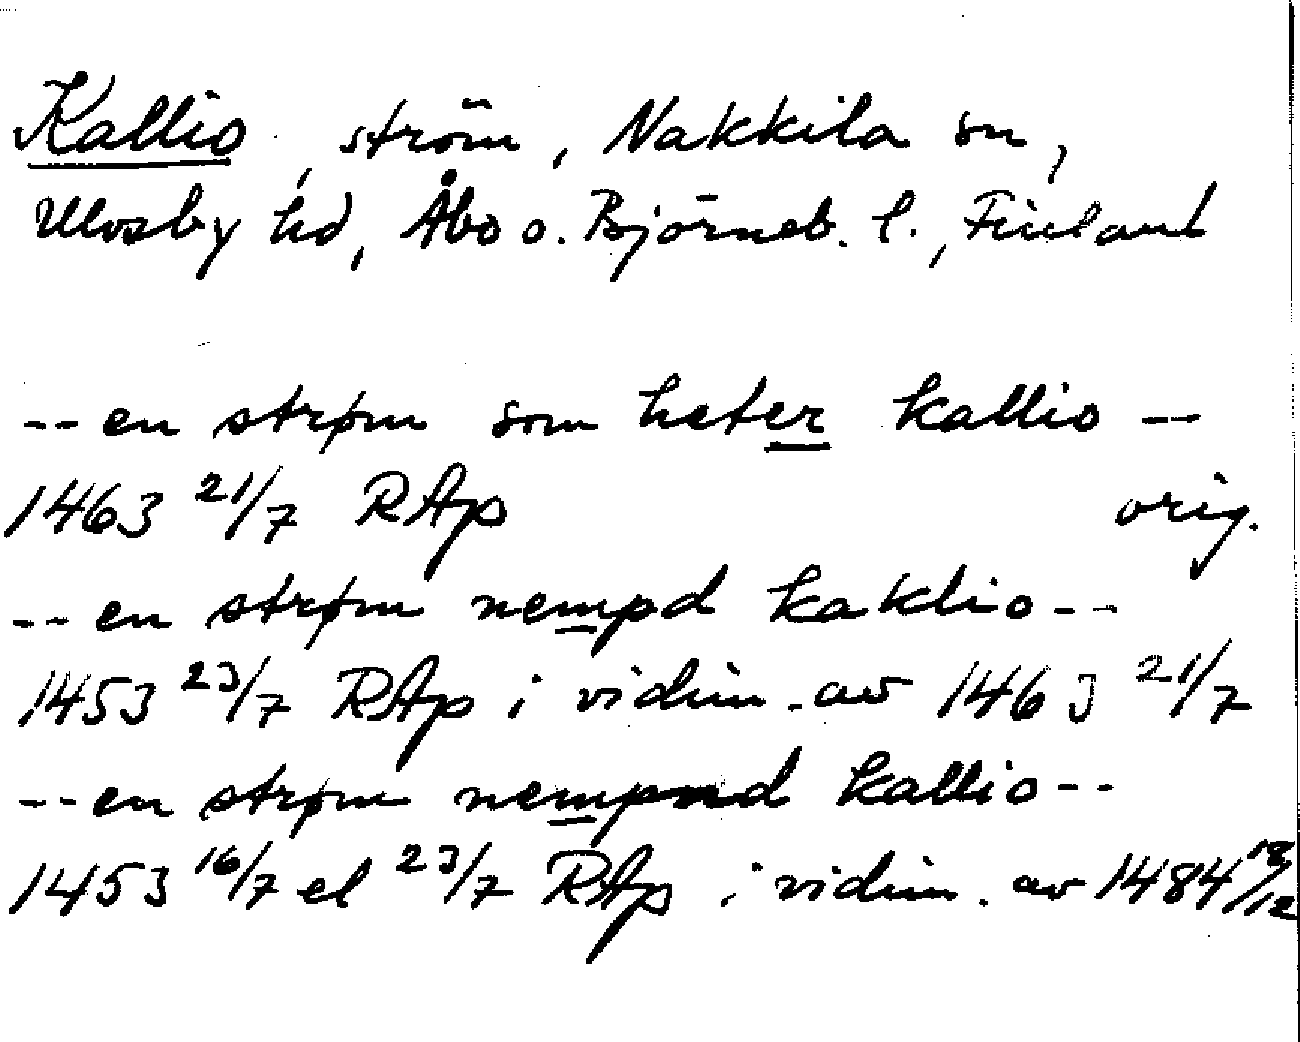 Kallio, ström, Nakkila sn,
Ulvsby hd, Åbo o. Björneb. l., Finland
--en strøm som heter kallio --
1463 21/7 RAp orig.
--en strøm nempd kaklio--
1453 23/7 RAp i vidim. av 1463 21/7
--en strøm nempnd kallio--
1453 16/7 el 23/7 RAp i vidim. av 1484